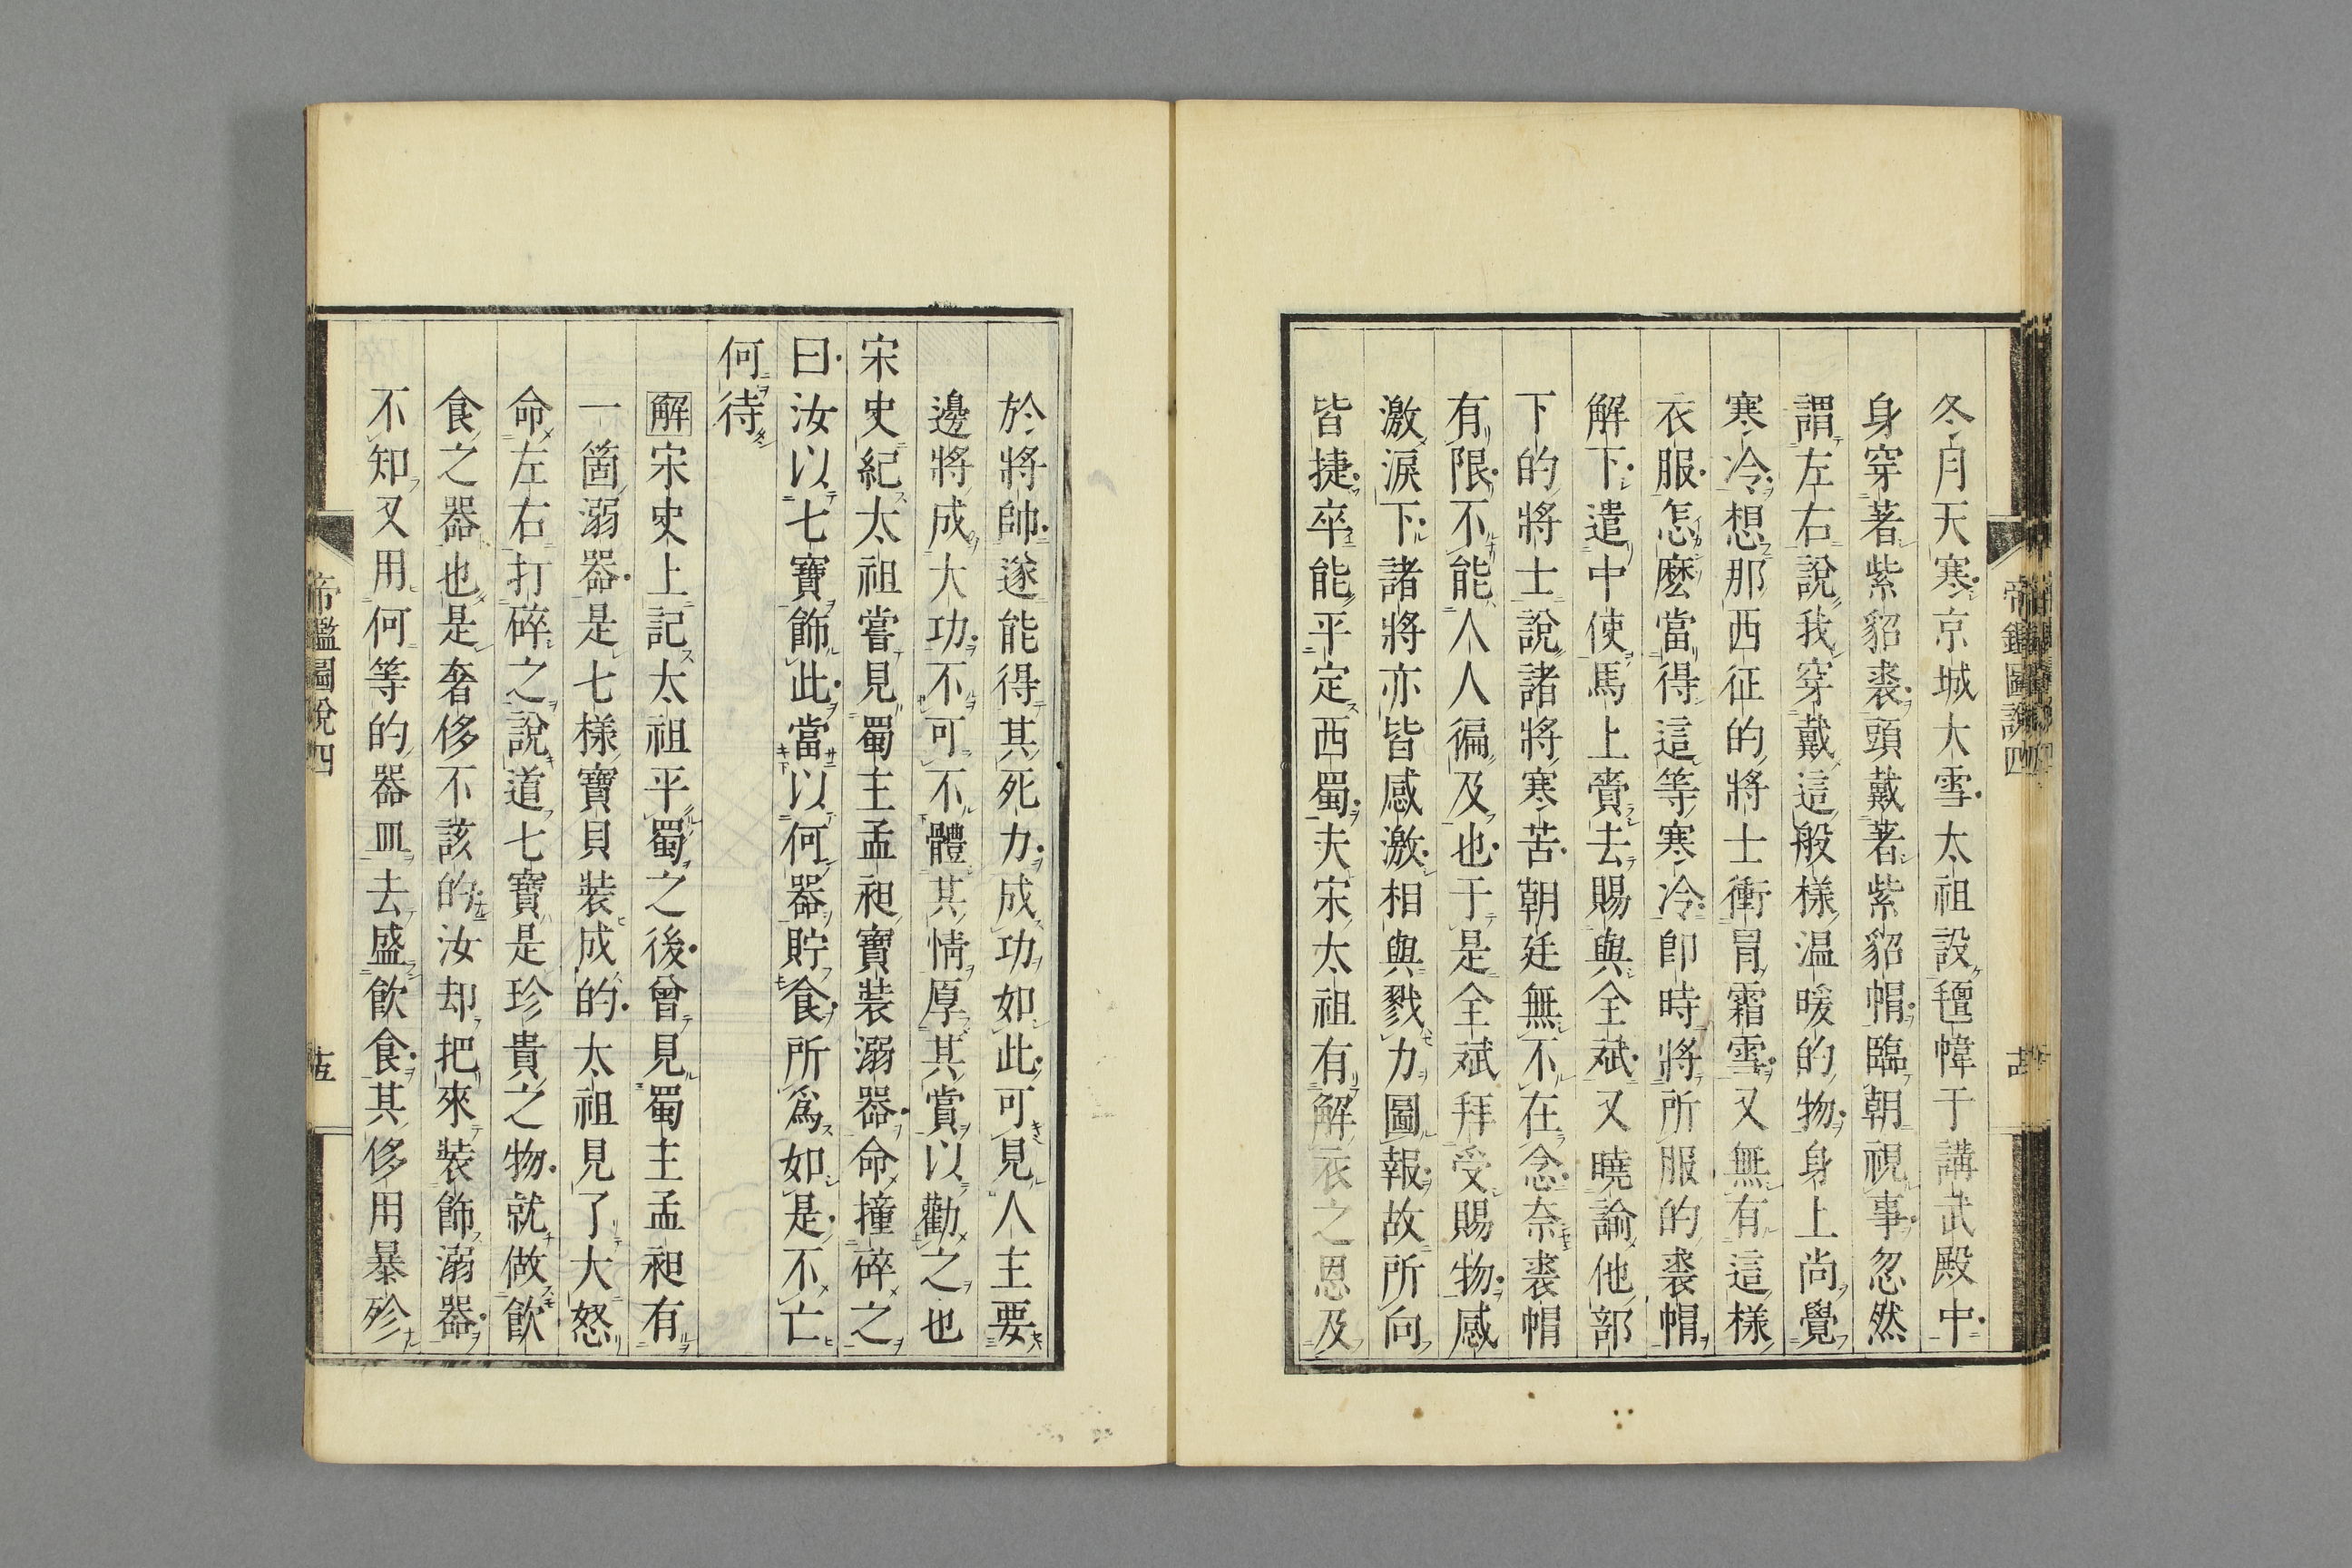 冬月天寒京城大雪太祖設氊幃于講武殿中
身穿著紫貂裘頭戴著紫貂帽臨朝視事忽然
謂左右說我穿戴這般樣温暖的物身上尚覺
寒冷想那西征的將士衝冒霜雪又無有這樣
衣服怎麼當得這等寒冷即時將所服的裘帽
解下遣中使馬上賫去賜與全斌又曉諭他部
下的將士說諸將寒苦朝廷無不在念奈裘帽
有限不能人人徧及也于是全斌拜受賜物感
激淚下諸將亦皆感激相與戮力圖報故所向
皆捷卒能平定西蜀夫宋太祖有解衣之恩及
於將帥遂能得其死力成功如此可見人主要
邊將成大功不可不體其情厚其賞以勸之也
宋史紀太祖嘗見蜀主孟昶寶裝溺器命撞碎之
曰汝以七寶飾此當以何器貯食所為如是不亡
何待
解宋史上記太祖平蜀之後曾見蜀主孟昶有
一箇溺器是七樣寶貝裝成的太祖見了大怒
命左右打碎之說道七寶是珍貴之物就做飲
食之器也是奢侈不該的汝却把來裝飾溺器
不知又用何等的器皿去盛飲食其侈用暴殄
帝鑑圖說四
十五